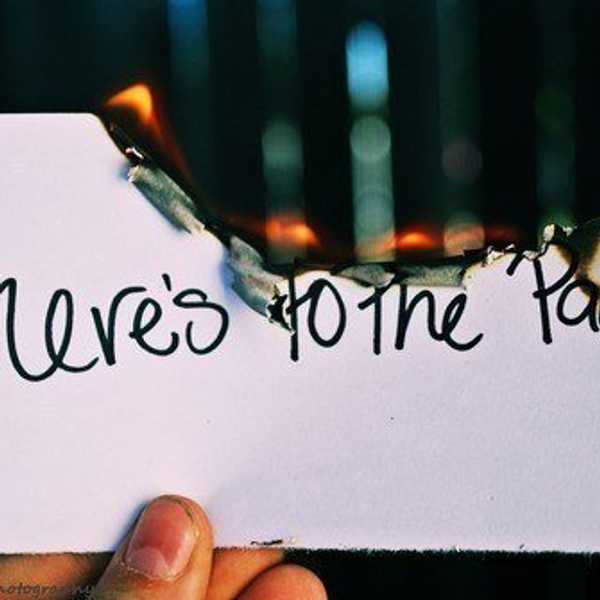 Here's to the Pa
otography